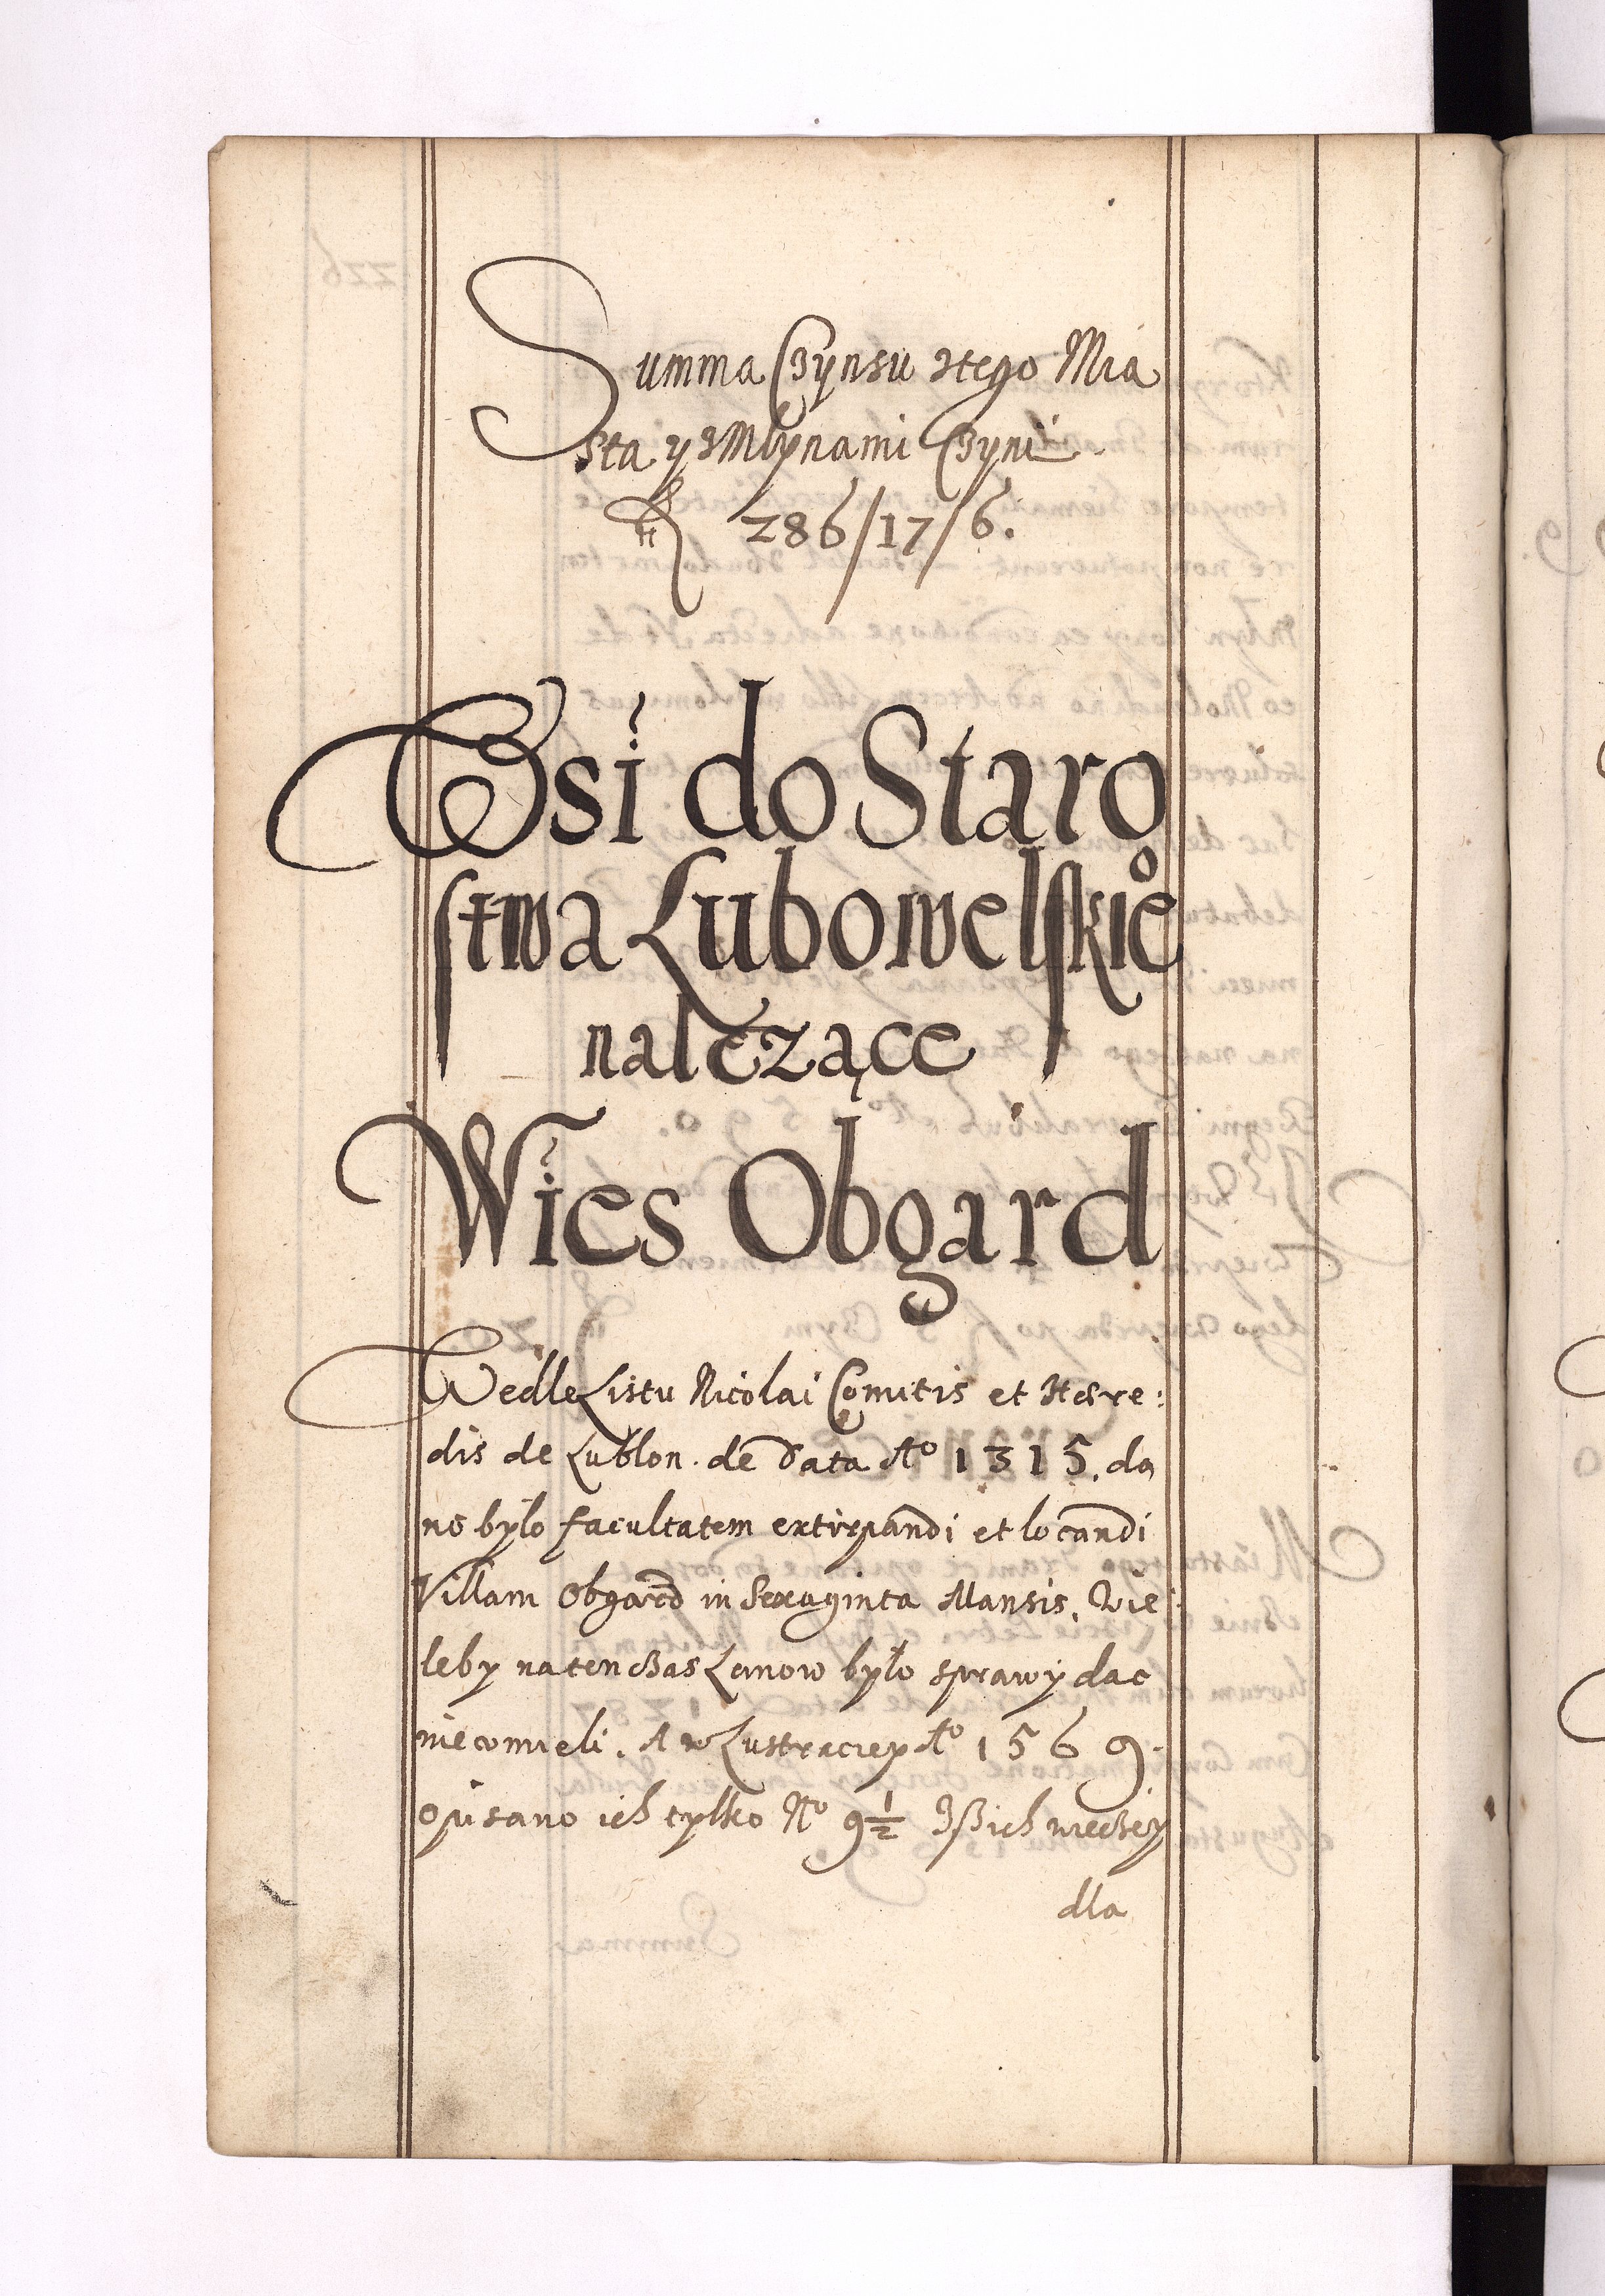 Summa Czÿnsu ztego Mia
sta y zMłynami Czyni
fl 286/17/6.
Wsi do Staro
stwa Lubowelskie°
nalezące
Wies Obgard
Wedle Listu Nicolai Comitis et Hære:
dis de Lublon. de Data A° 1315. da
no bylo facultatem extirpandi et locandi
Villam Obgard in Sexaginta Mansis. Wie
leby natenczas Lanow było sprawy dac
nieomieli. A w Lustraciey A° 1569.
opisano ich tylko N° 9 1/2 Iz ich wieczey
dla